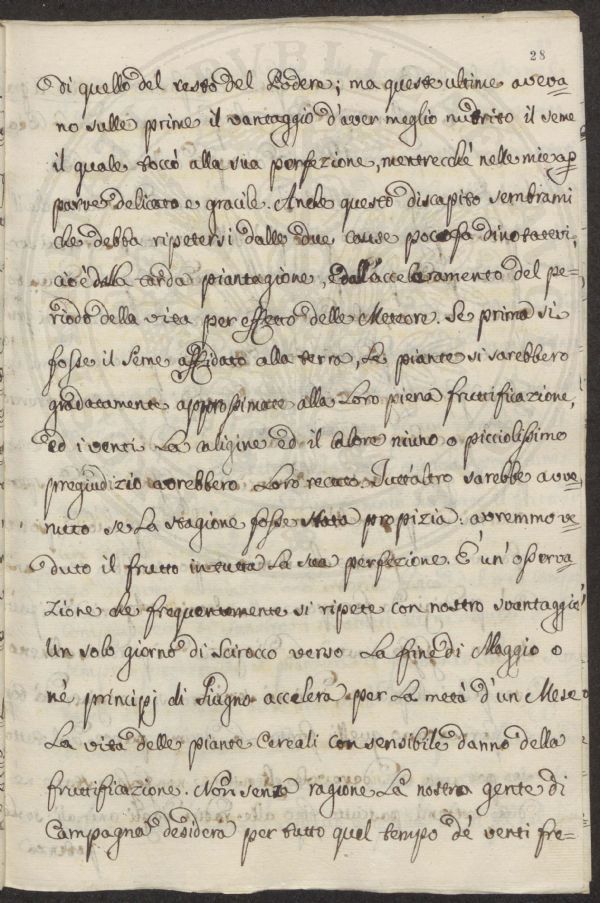 28
di quello del resto del Podere; ma queste ultime aveva-
no sulle prime il vantaggio d'aver meglio nudrito il seme
il quale toccò alla sua perfezione, mentrecchè nelle mie ap
parve delicato e gracile. Anche questo discapito sembrami
che debba ripetersi dalle due cause pocofa dinotatevi,
cioè dalla tarda piantagione, e dall'acceleramento del pe-
riodo della vita per effetto delle Meteore. Se prima si
fosse il seme affidato alla terra, le piante si sarebbero
gradatamente approssimate alla loro piena fruttificazione,
ed i venti la caligine ed il calore niuno o picciolissimo
pregiudizio avrebbero loro recato. Tutt'altro sarebbe avve-
nuto se la stagione fosse stata propizia: avremmo ve
duto il frutto in tutta la sua perfezione. E' un' osserva-
zione che frequentemente si ripete con nostro svantaggio
un solo giorno di Scirocco verso la fine di Maggio o
nè principj di Giugno accelera per la metà d'un Mese
la vita delle piante Cereali con sensibile danno della
fruttificazione. Non senza ragione la nostra gente di
Campagna desidera per tutto quel tempo de' venti fre-